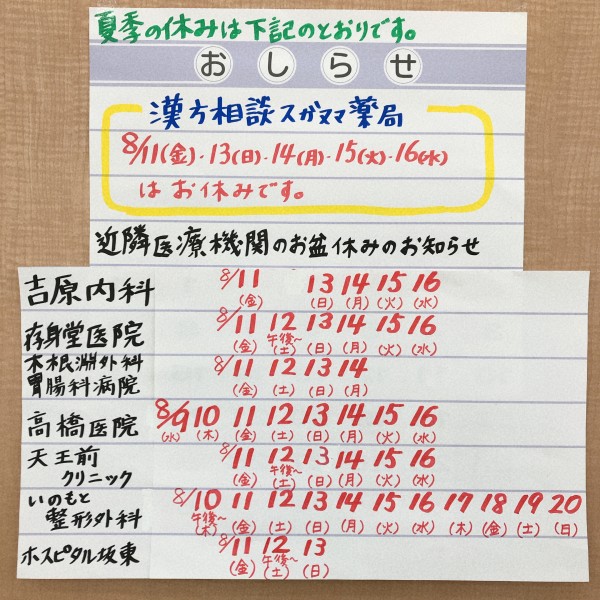 夏季の休みは下記のとおりです。
おしらせ
漢方相談スガヌマ薬局
8/11(金)・13(日)・14(月)・15(火)・16(水)
はお休みです。
近隣医療機関のお盆休みのお知らせ
吉原内科 8/11(金) 13(日) 14(月) 15(火) 16(水)
存身堂医院 8/11(金) 12午後〜(土) 13(日) 14(月) 15(火) 16(水)
木根淵外科
胃腸科病院 8/11(金) 12(土) 13(日) 14(月)
高橋医院 8/9(水) 10(木) 11(金) 12(土) 13(日) 14(月) 15(火) 16(水)
天王前
クリニック 8/11(金) 12午後〜(土) 13(日) 14(月) 15(火) 16(水)
いのもと
整形外科 8/10午後〜(木) 11(金) 12(土) 13(日) 14(月) 15(火) 16(水) 17(木) 18(金) 19(土) 20(日)
ホスピタル坂東 8/11(金) 12午後〜(土) 13(日)